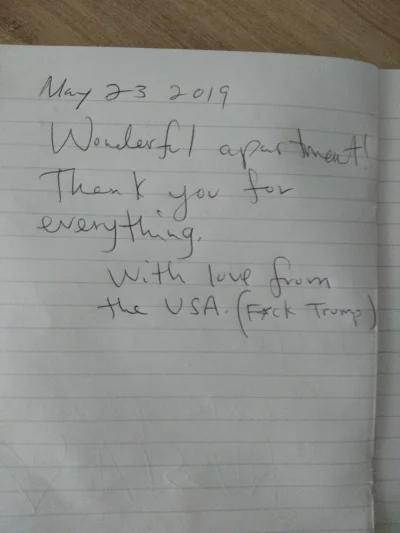 May 23 2019
Wonderful apartment!
Thank you for
everything.
With love from
the USA. (F*ck Trump)